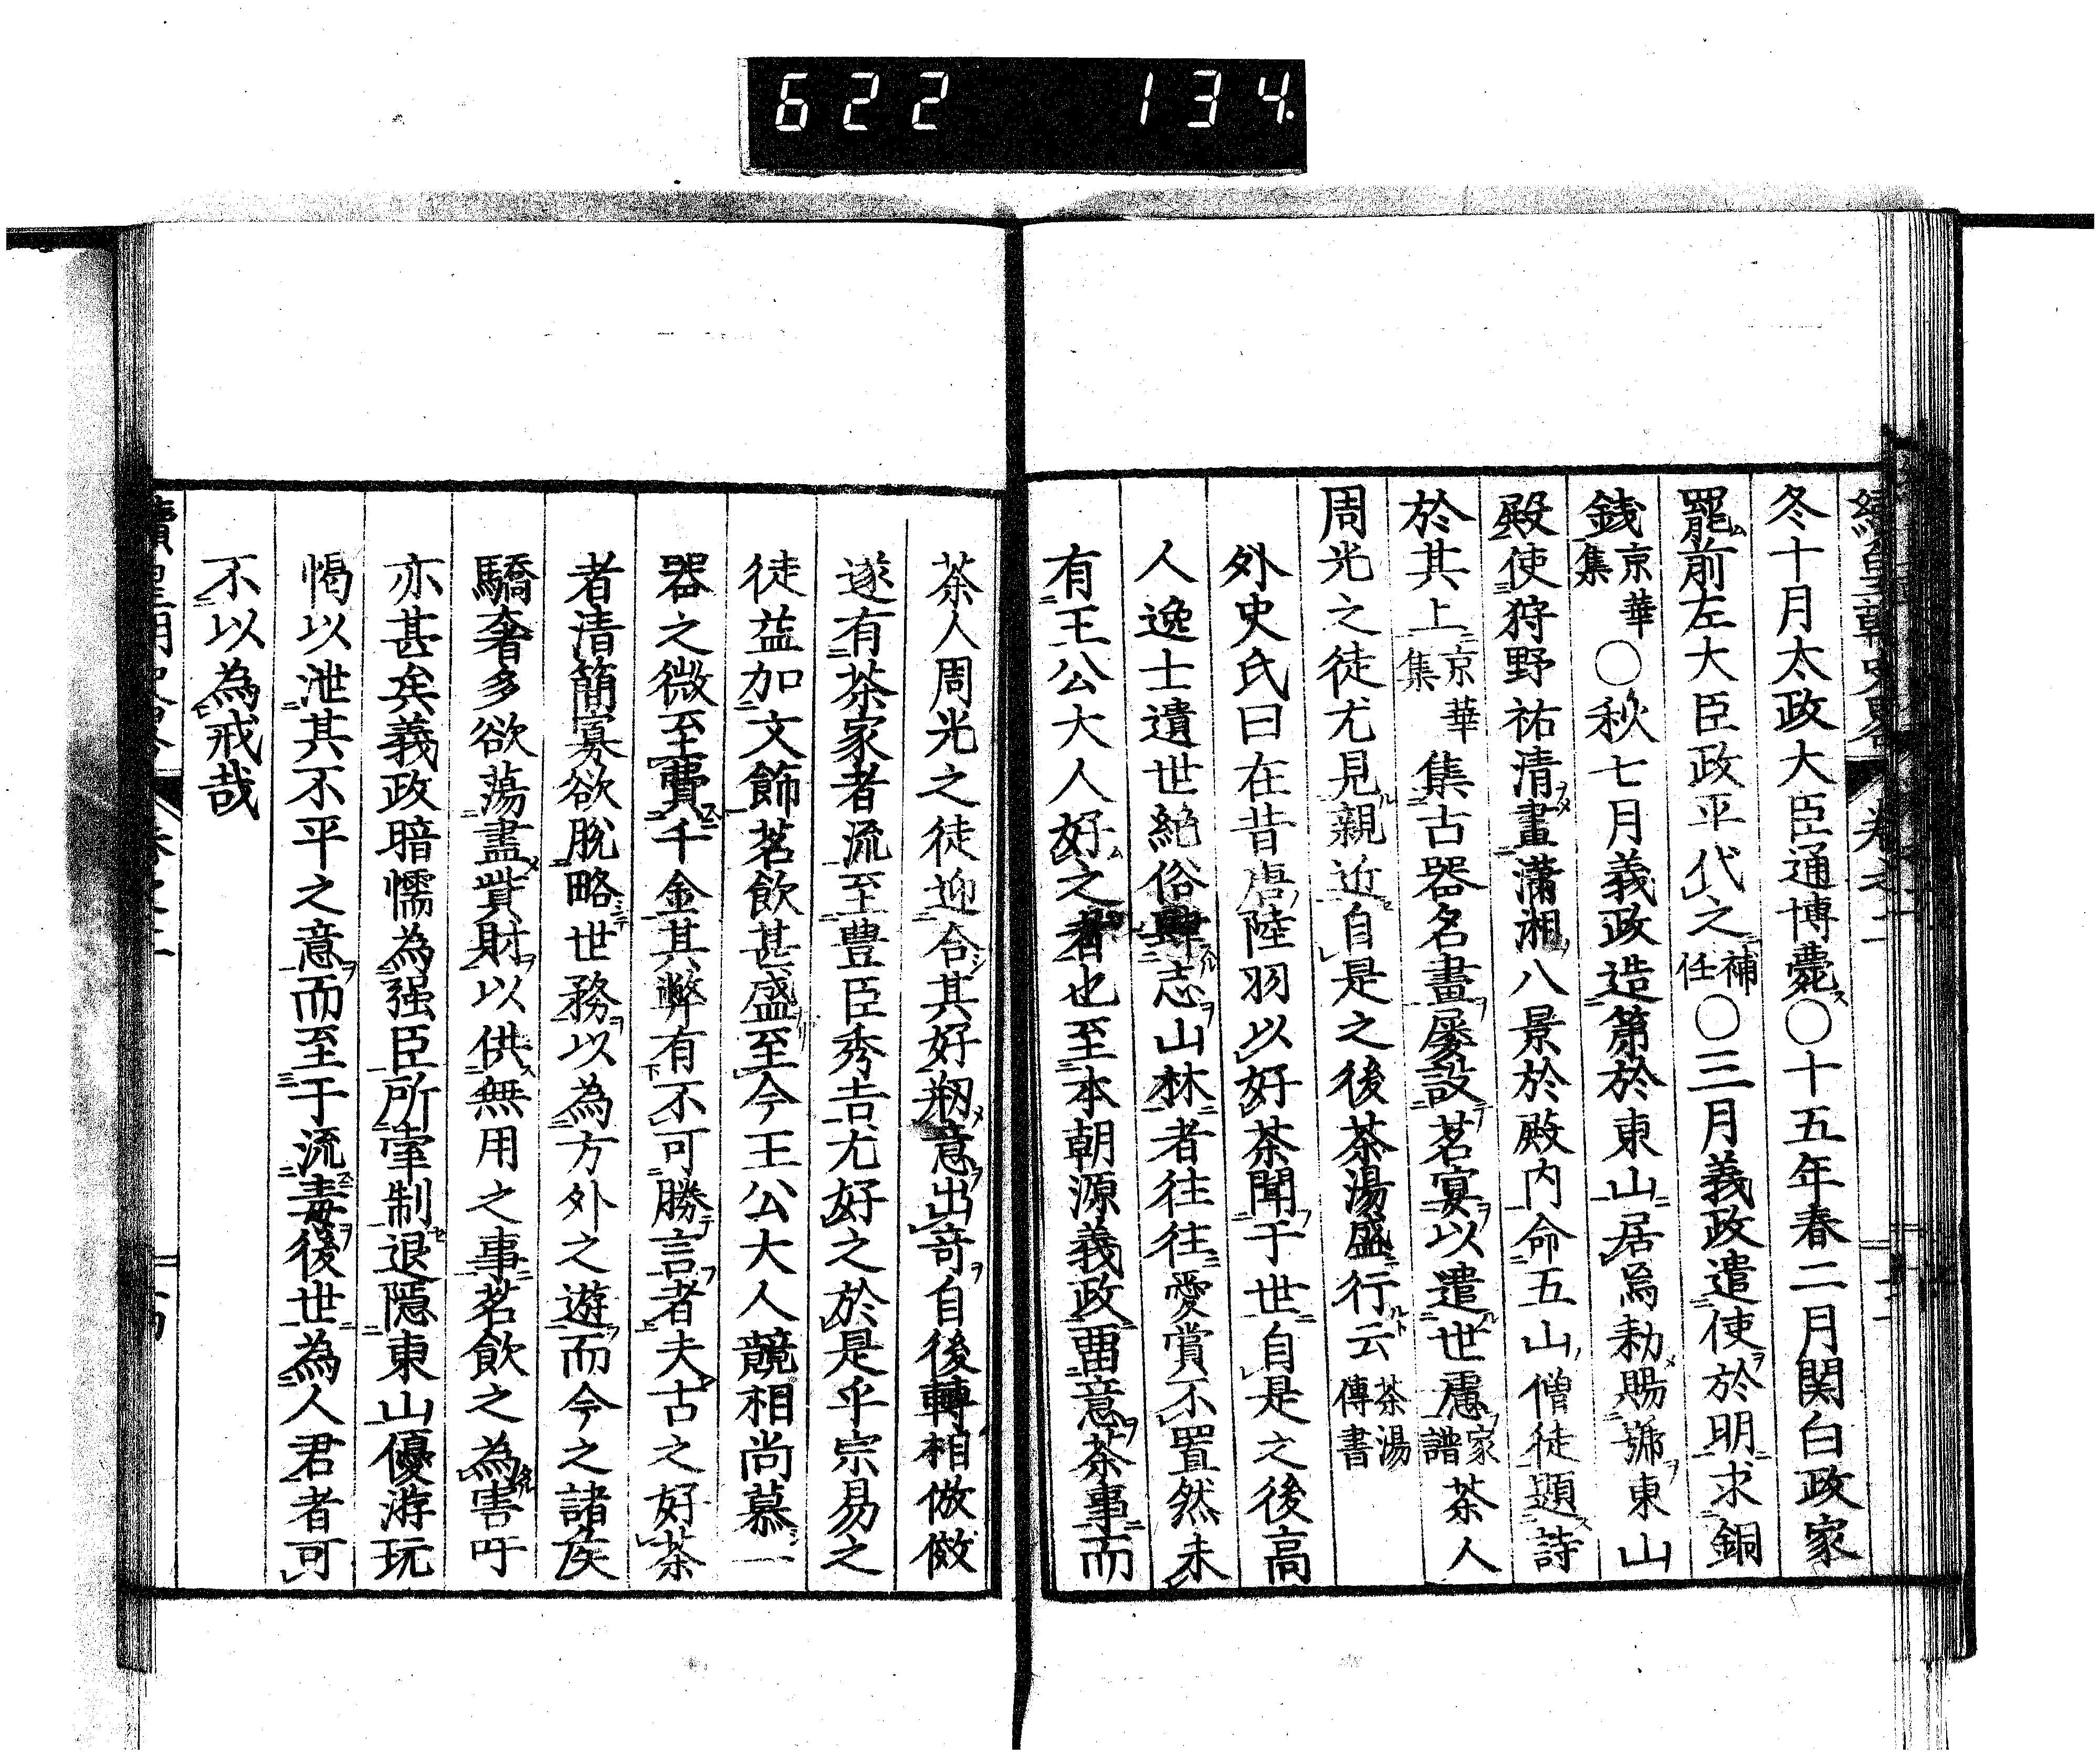 622 134.
續皇朝史略 卷之二
冬十月太政大臣通博薨○十五年春二月関白政家
罷前左大臣政平代之補任○三月義政遣使於明求銅
銭京華集○秋七月義政造第於東山居焉勅賜號東山
殿使狩野祐清畫瀟湘八景於殿内命五山僧徒題詩
於其上京華集集古器名畫屡設茗宴以遣世慮家譜茶人
周光之徒尤見親近自是之後茶湯盛行云茶湯傳書
外史氏曰在昔唐陸羽以好茶聞于世自是之後高
人逸士遺世絶俗肆志山林者往往愛賞不置然未
有王公大人好之者也至本朝源義政畱意茶事而
茶人周光之徒迎合其好刱意出奇自後轉相倣傚
遂有茶家者流至豊臣秀吉尤好之於是乎宗易之
徒益加文飾茗飲甚盛至今王公大人競相尚慕一
器之微至費千金其弊有不可勝言者夫古之好茶
者清簡寡欲脫略世務以為方外之遊而今之諸侯
驕奢多欲蕩盡貲財以供無用之事茗飲之為害吁
亦甚矣義政暗懦為强臣所牽制退隱東山優游玩
愒以泄其不平之意而至于流毒後世為人君者可
不以為戒哉